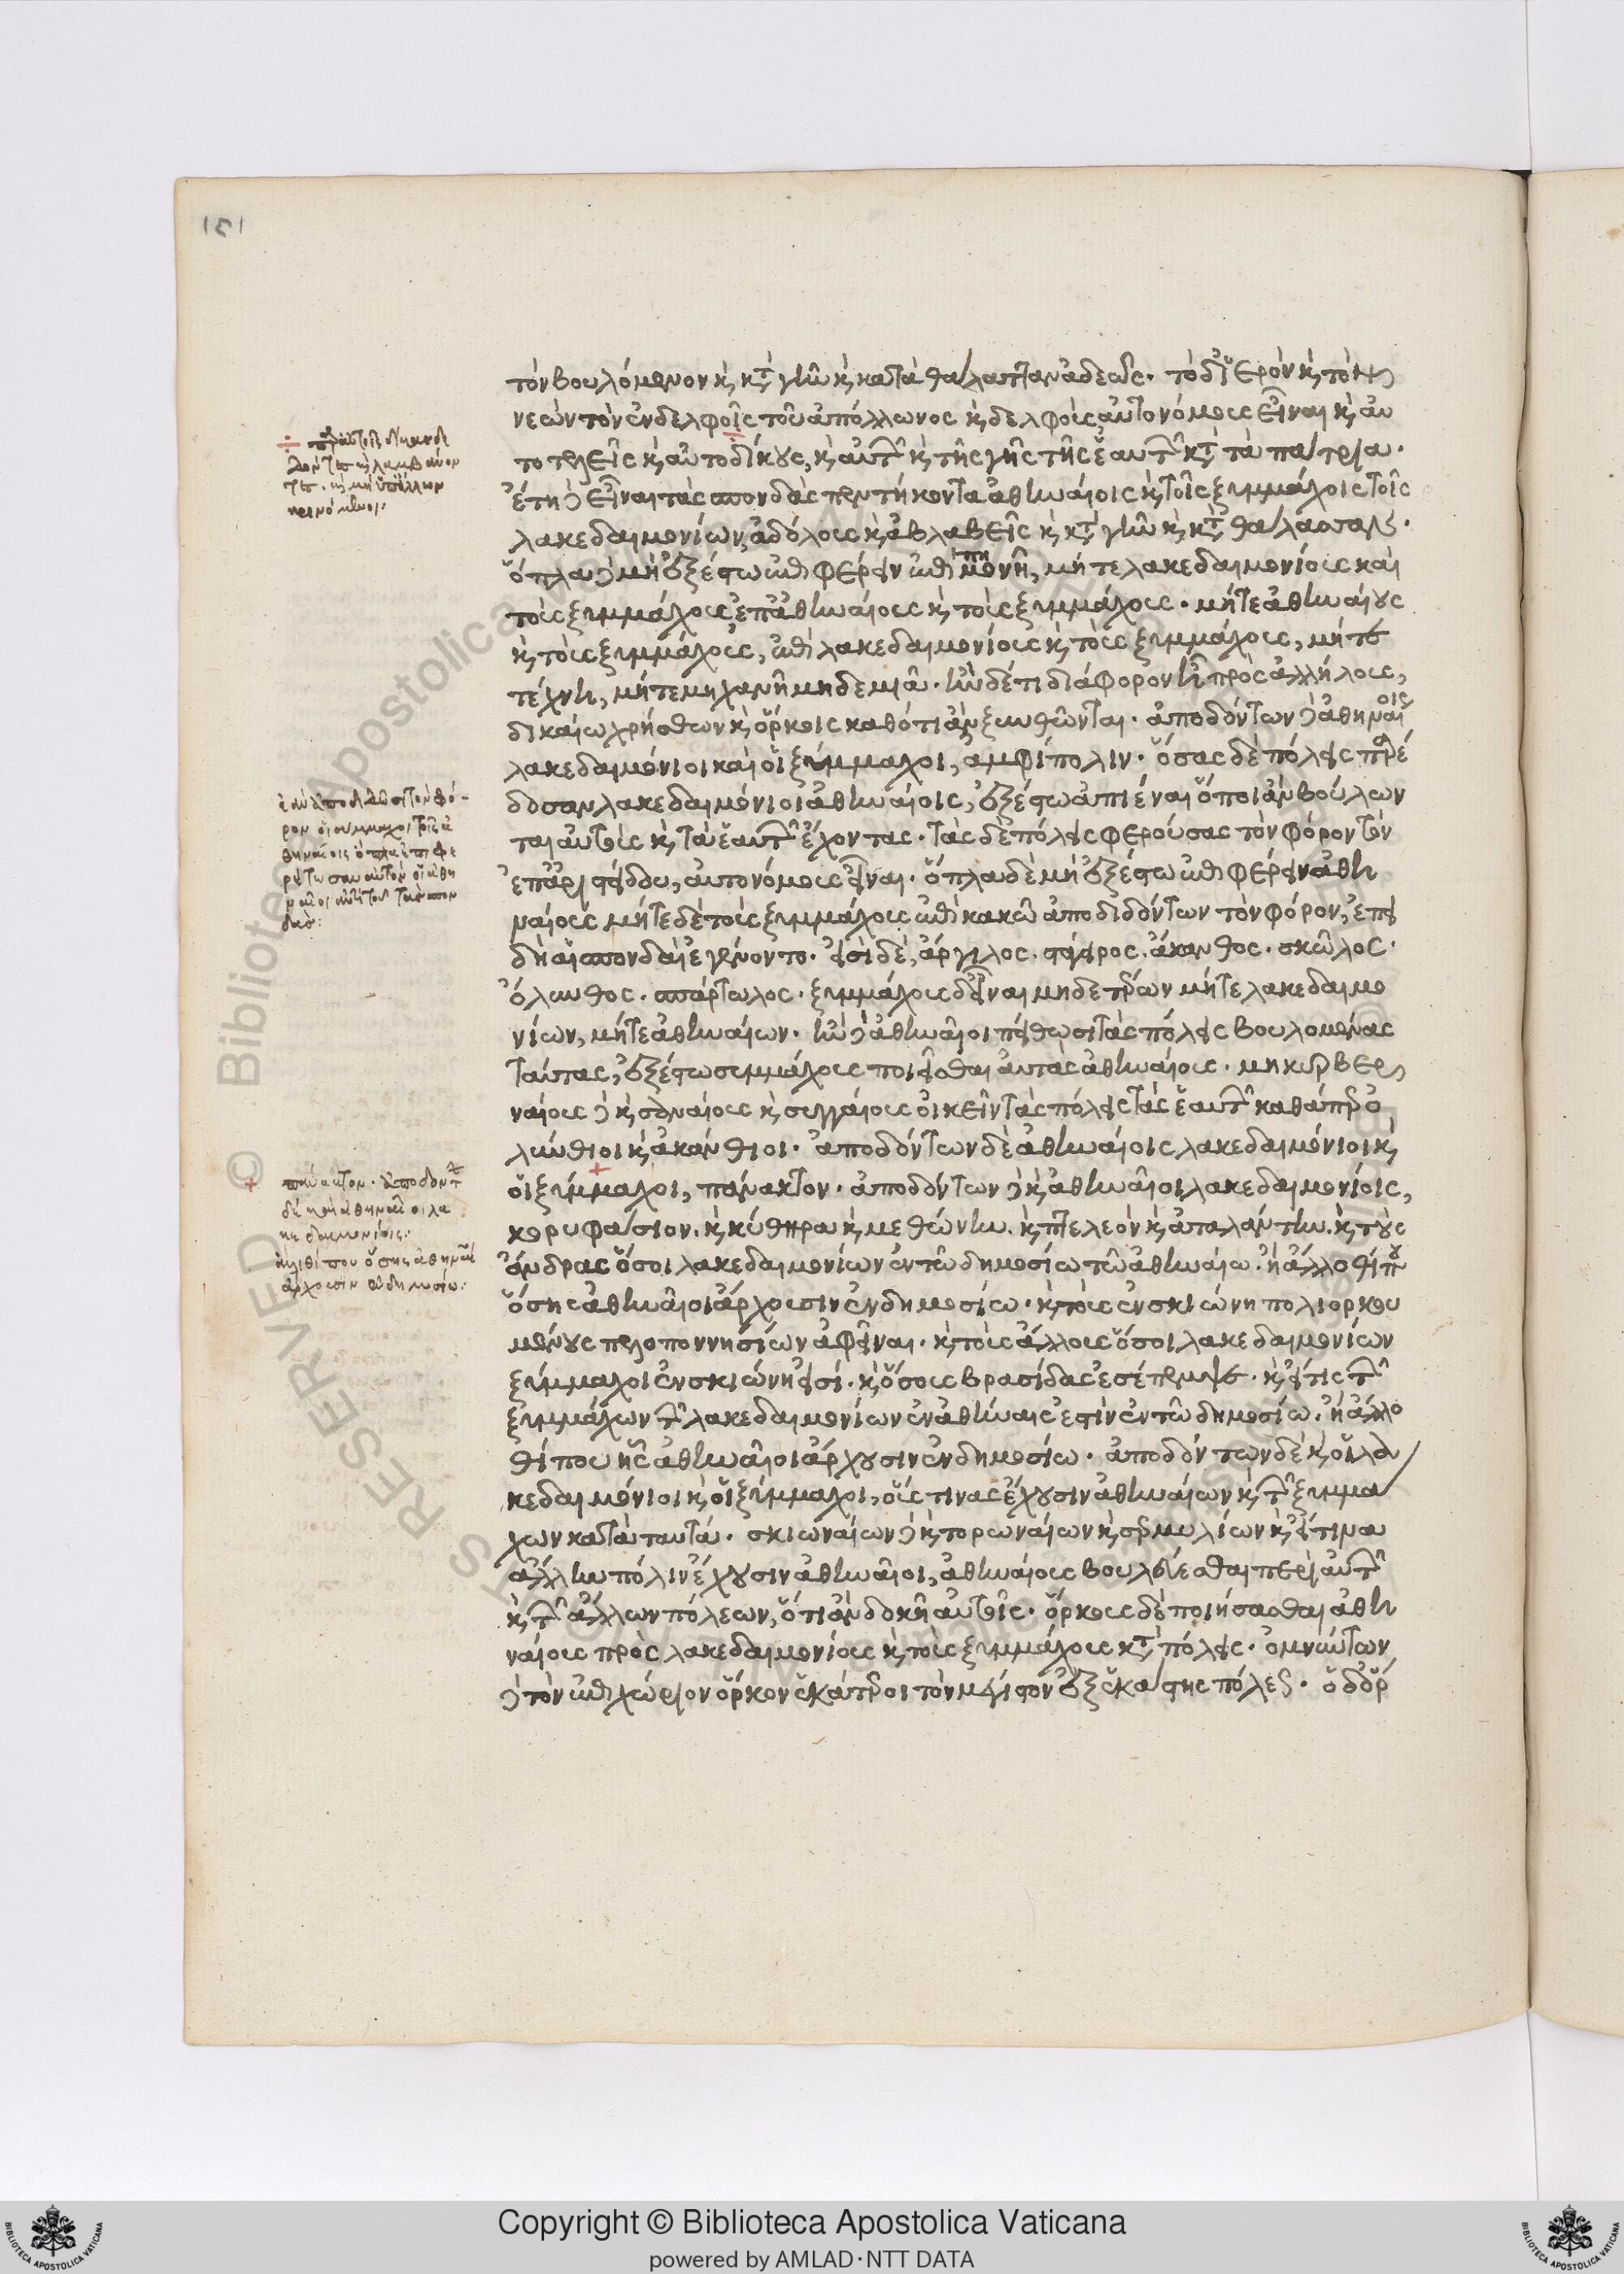 151
τὸν βουλόμενον κ κτ γῆν κ κατὰ θάλατταν ἀδεῶς. τὸ δ' ἱερὸν κ τὸν
νεὼν τὸν ἐν δελφοῖς τοῦ ἀπόλλωνος κ δελφοὺς αὐτονόμους εἶναι κ αὐ
τοτελεῖς κ αὐτοδίκους, κ αὑτῶν κ τῆς γῆς τῆς ἑαυτῶν κτ τὰ πάτρια.
ἔτη δὲ εἶναι τὰς σπονδὰς πεντήκοντα ἀθηναίοις κ τοῖς ξυμμάχοις τοῖς
λακεδαιμονίων, ἀδόλους κ ἀβλαβεῖς κ κτ γῆν κ κτ θάλασσαν.
ὅπλα δὲ μὴ ἐξέστω ἐπιφέρειν ἐπὶ πημονῆ, μήτε λακεδαιμονίους καὶ
τοὺς ξυμμάχους ἐπ' ἀθηναίους κ τοὺς ξυμμάχους. μήτε ἀθηναίους
κ τοὺς ξυμμάχους, ἐπὶ λακεδαιμονίους κ τοὺς ξυμμάχους, μήτε
τέχνη, μήτε μηχανῆ μηδεμιᾶ. ἢν δέ τι διάφορον ἦ πρὸς ἀλλήλους,
δικαίω χρήσθων κ ὅρκοις καθότι ἂν ξυνθῶνται. ἀποδόντων δὲ ἀθηναίοις
λακεδαιμόνιοι καὶ οἱ ξύμμαχοι, ἀμφίπολιν. ὅσας δὲ πόλεις παρέ
δοσαν λακεδαιμόνιοι ἀθηναίοις, ἐξέστω ἀπιέναι ὅποι ἂν βούλων
ται αὐτοὺς κ τὰ ἑαυτῶν ἔχοντας. τὰς δὲ πόλεις φερούσας τὸν φόρον τὸν
ἐπ' ἀριστείδου, αὐτονόμους εἶναι. ὅπλα δὲ μὴ ἐξέστω ἐπιφέρειν ἀθη
ναίους μήτε δὲ τοὺς ξυμμάχους ἐπὶ κακῶ ἀποδιδόντων τὸν φόρον, ἐπει
δὴ αἱ σπονδαὶ ἐγένοντο. εἰσὶ δέ, ἄργιλος. στάγειρος. ἄκανθος. σκῶλος.
ὄλυνθος. σπάρτωλος. ξυμμάχους δ' εἶναι μηδετέρων μήτε λακεδαιμο
νίων, μήτε ἀθηναίων. ἢν δὲ ἀθηναῖοι πείθωσι τὰς πόλεις βουλομένας
ταύτας, ἐξέστω ξυμμάχους ποιεῖσθαι αὐτὰς ἀθηναίους. μηκυβερ
ναίους δὲ κ σαναίους κ σιγγαίους οἰκεῖν τὰς πόλεις τὰς ἑαυτῶν καθάπερ ὀ
λύνθιοι κ ἀκάνθιοι. ἀποδόντων δὲ ἀθηναίοις λακεδαιμόνιοι κ
οἱ ξύμμαχοι, πάνακτον. ἀποδόντων δὲ κ ἀθηναῖοι λακεδαιμονίοις,
κορυφάσιον. κ κύθηρα κ μεθώνην. κ πτελεὸν κ ἀταλάντην. κ τοὺς
ἄνδρας ὅσοι λακεδαιμονίων ἐν τῶ δημοσίω τῶ ἀθηναίω. ἢ ἄλλοθί που
ὅσης ἀθηναῖοι ἄρχουσιν ἐν δημοσίω. κ τοὺς ἐν σκιώνη πολιορκου
μένους πελοποννησίων ἀφεῖναι. κ τοὺς ἄλλους ὅσοι λακεδαιμονίων
ξύμμαχοι ἐν σκιώνη εἰσί. κ ὅσους βρασίδας ἐσέπεμψε. κ εἴ τις τῶν
ξυμμάχων τῶν λακεδαιμονίων ἐν ἀθήναις ἐστὶν ἐν τῶ δημοσίω. ἢ ἄλλο
θί που ἧς ἀθηναῖοι ἄρχουσιν ἐν δημοσίω. ἀποδόντων δὲ κ οἱ λα
κεδαιμόνιοι κ οἱ ξύμμαχοι, οὕς τινας ἔχουσιν ἀθηναίων κ τῶν ξυμμά
χων κατὰ ταυτά. σκιωναίων δὲ κ τορωναίων κ σερμυλίων κ εἴ τινα
ἄλλην πόλιν ἔχουσιν ἀθηναῖοι, ἀθηναίους βουλεύεσθαι περὶ αὐτῶν
κ τῶν ἄλλων πόλεων, ὅτι ἂν δοκῆ αὐτοῖς. ὅρκους δὲ ποιήσασθαι ἀθη
ναίους πρὸς λακεδαιμονίους κ τοὺς ξυμμάχους κτ πόλεις. ὀμνύντων
δὲ τὸν ἐπιχώριον ὅρκον ἑκάτεροι τὸν μέγιστον ἐξ ἑκάστης πόλεως. ὁ δ' ὅρ
ἐὰν ἀποδιδῶσι τὸν φό-
ρον οἱ σύμμαχοι τοῖς ἀ
θηναίοις ὅπλα ἐπιφε
πάνακτον. ἀποδόντων
δὲ καὶ ἀθηναῖοι λα
κεδαιμονίοις:
ἄλλοθί που ὅσης ἀθηναῖοι
ἄρχουσιν ἐν δημοσίω:
Copyright © Biblioteca Apostolica Vaticana
powered by AMLAD·NTT DATA